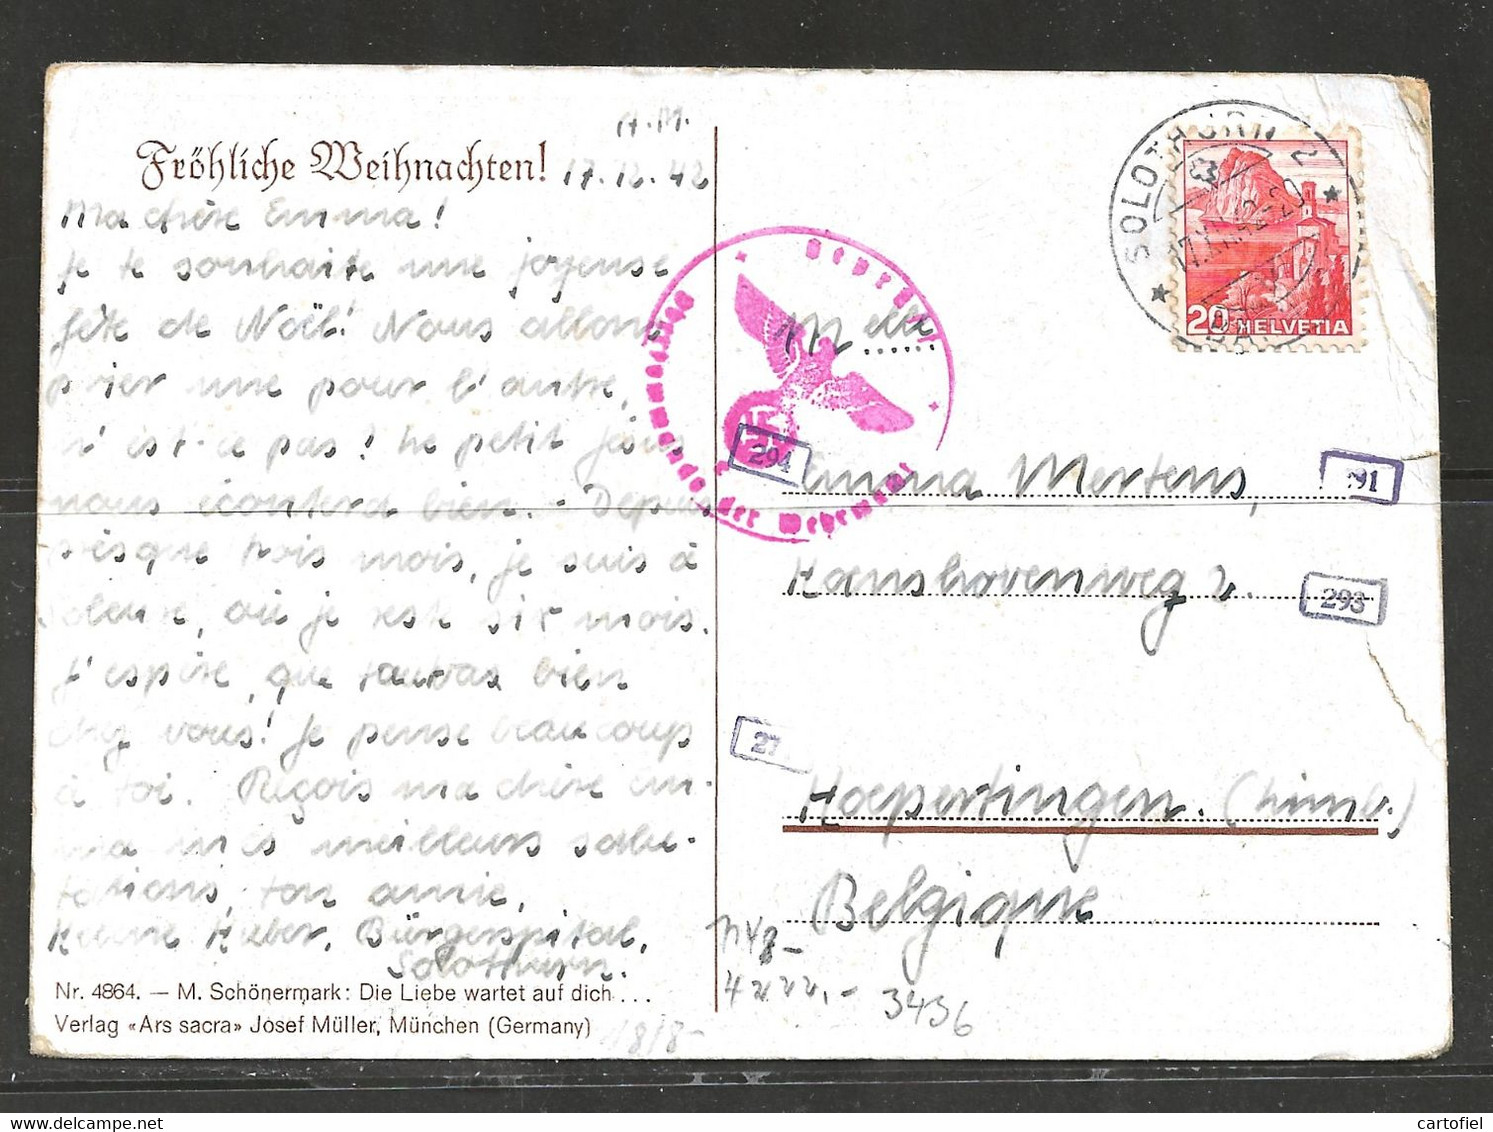 H.M.
Fröhliche Weihnachten! 17.12.42
Ma chère Emma!
Je te souhaite une joyeuse
fête de Noël! Nous allons
prier une pour l'autre,
n'est-ce pas? Le petit Jésus
nous écoutera bien. - Depuis
presque trois mois, je suis à
Soleure, où je reste six mois.
J'espère, que tout va bien
chez vous! Je pense beaucoup
à toi. Reçois ma chère Em-
ma mes meilleurs salu-
tations, ton amie,
Huber, Bürgerspital,
Solothurn.
Nr. 4864. — M. Schönermark: Die Liebe wartet auf dich...
Verlag «Ars sacra» Josef Müller, München (Germany)
SOLOTHURN 2
17.XII.42-20
20 HELVETIA
Geprüft
Oberkommando der Wehrmacht
Melle
294
Emma Mertens,
291
Hoenshovenweg 2.
293
27
Hoepertingen. (Limb.)
Belgique
3436